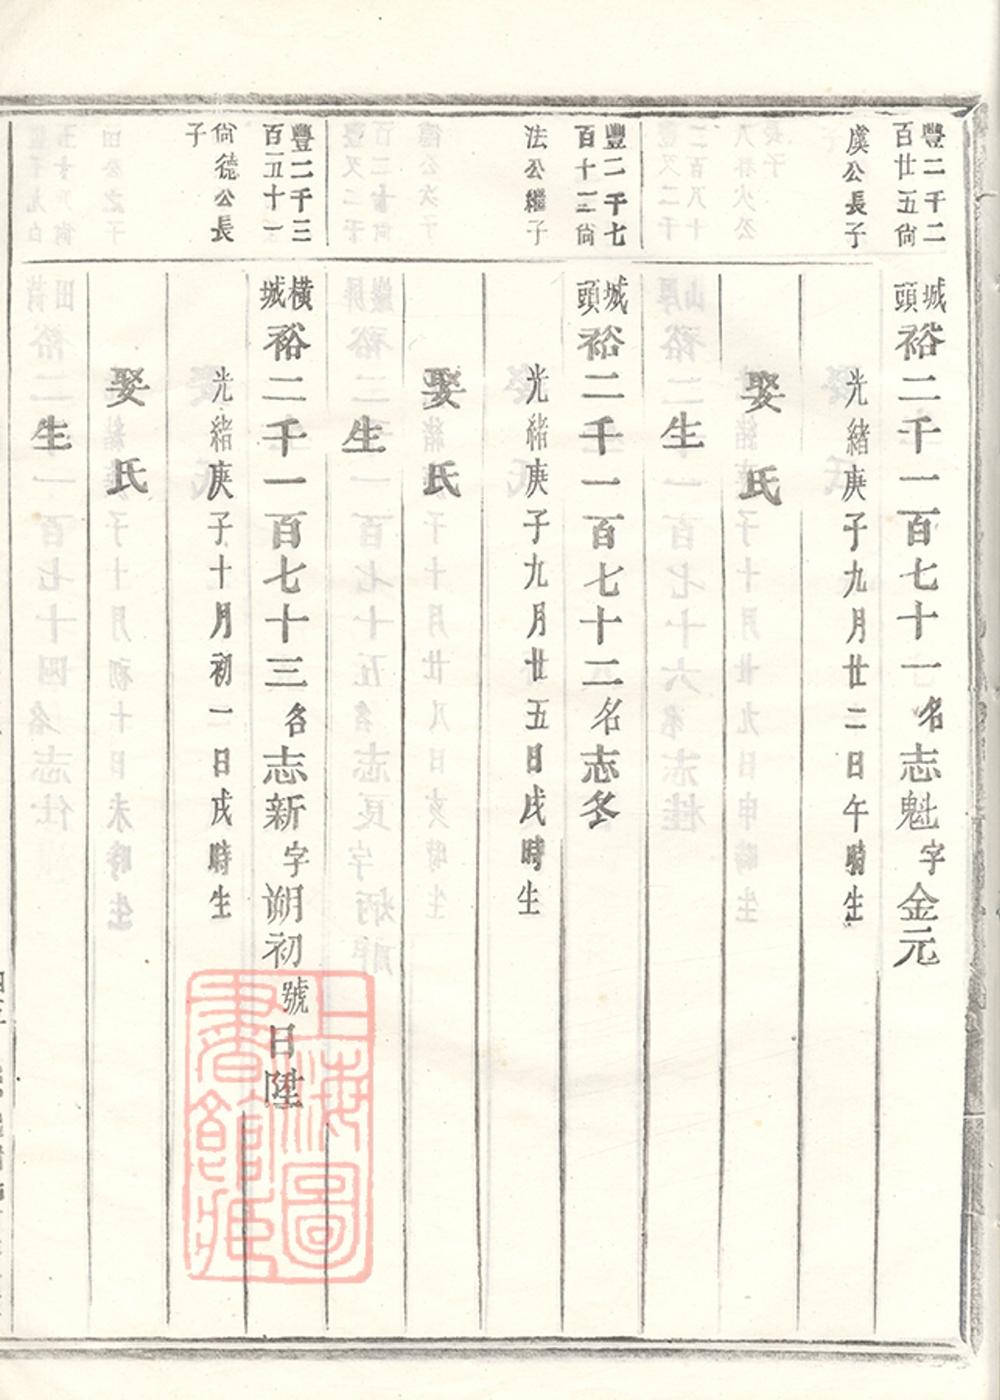 豐二千二
百廿五尙
虞公長子
城頭裕二千一百七十一名志魁字金元
光緒庚子九月廿二日午時生
娶氏
生
豐二千七
百十三尙
法公繼子
城頭裕二千一百七十二名志冬
光緒庚子九月廿五日戌時生
娶氏
生
豐二千三
百五十一
尙德公長
子
橫城裕二千一百七十三名志新字朔初號日陞
光緒庚子十月初一日戌時生
娶氏
生
上海圖
書館藏